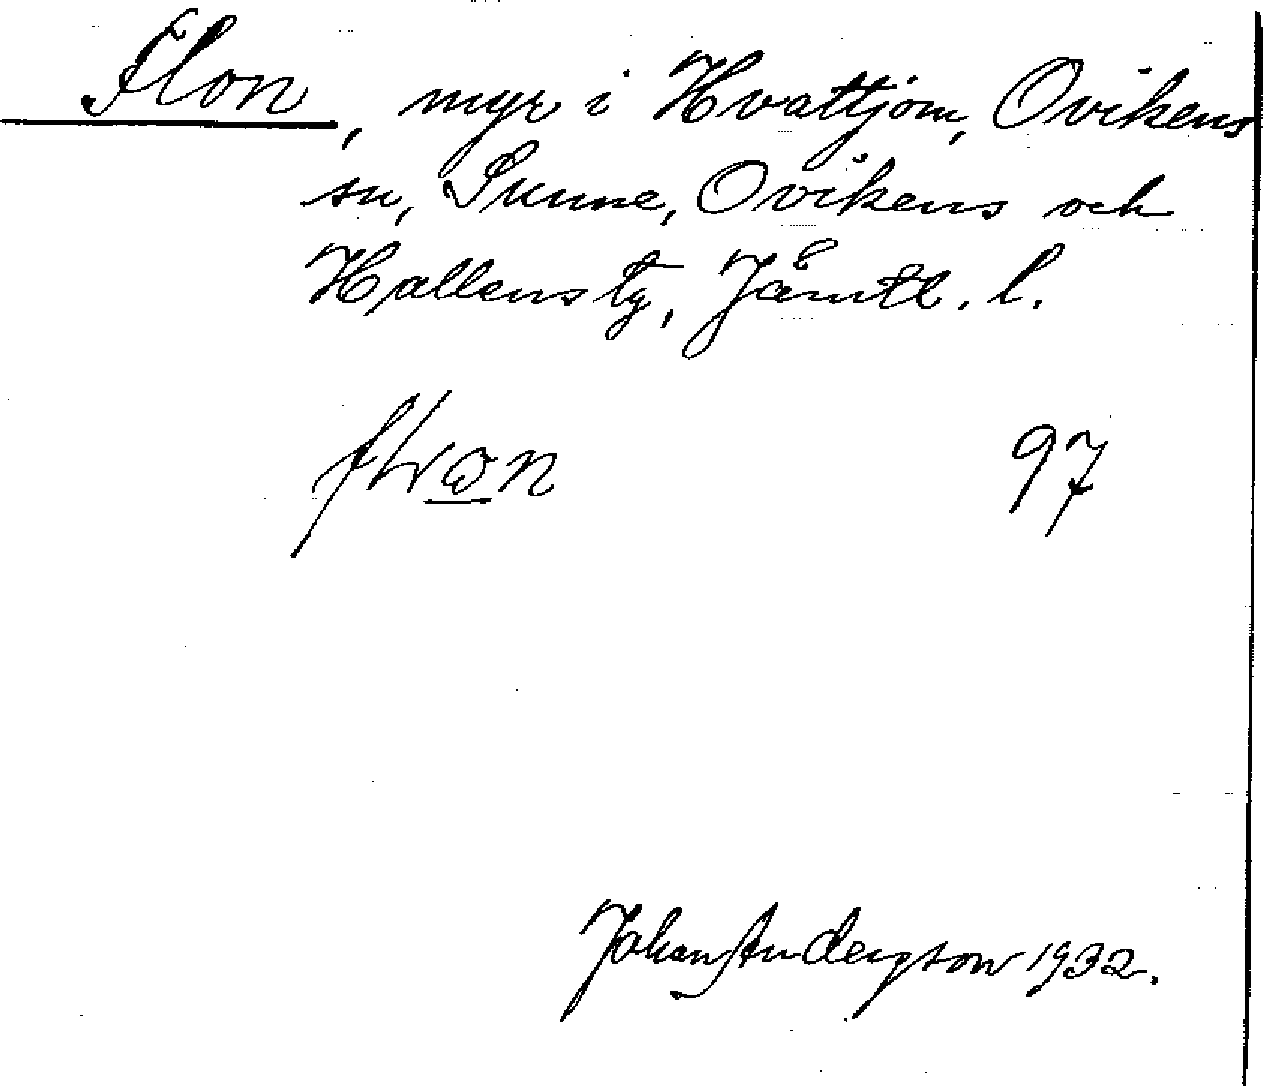 Flon, myr i Hvattjom, Ovikens
sn, Sunne, Ovikens och
Hallens tg, Jämtl. l.
97
Johan Andersson 1932.